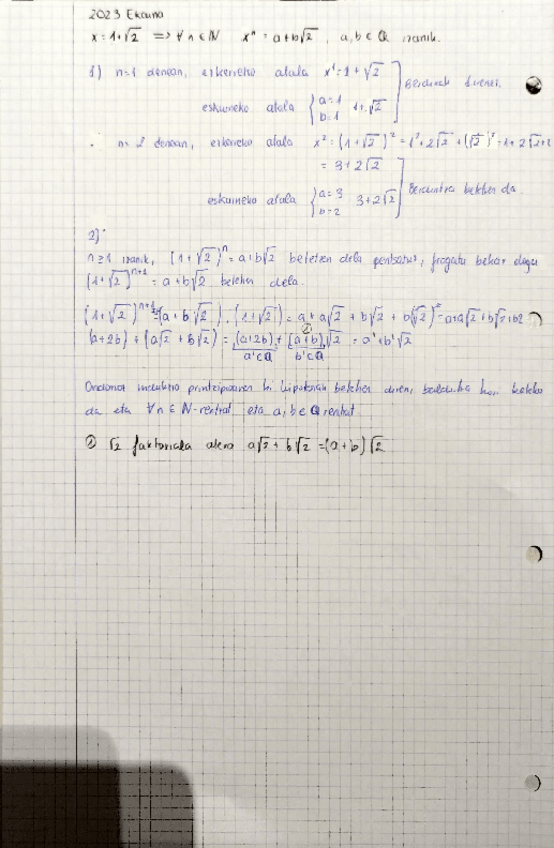 2023 Ekaina
x = 1+√2 => ∀ n ∈ ℕ xⁿ = a+b√2, a,b ∈ ℚ izanik.
1) n=1 denean, ezkerreko atala x¹ = 1+√2
eskuineko atala { a=1 b=1 1+√2 ] Berdinak direnez.
n=2 denean, ezkerreko atala x² = (1+√2)² = 1²+2√2+(√2)² = 1+2√2+2
= 3+2√2
eskuineko atala { a=3 b=2 3+2√2 ] Berdintza betetzen da
2)
n≥1 izanik, (1+√2)ⁿ = a+b√2 betetzen dela pentsatuz, frogatu behar dugu
(1+√2)ⁿ⁺¹ = a+b√2 betetzen dela.
(1+√2)ⁿ⁺¹ = (a+b√2)·(1+√2) = a+a√2+b√2+b(√2)² = a+a√2+b√2+b2
(a+2b)+(a√2+b√2) = (a+2b)+(a+b)√2 = a'+b'√2
① a'∈ℚ b'∈ℚ
Ondorioz indukzio printzipioaren bi hipotesiak betetzen diren, berdintza hau betetzen
da eta ∀n ∈ ℕ-rentzat eta a,b ∈ ℚ rentzat.
① √2 faktoriala atera a√2+b√2 = (a+b)√2